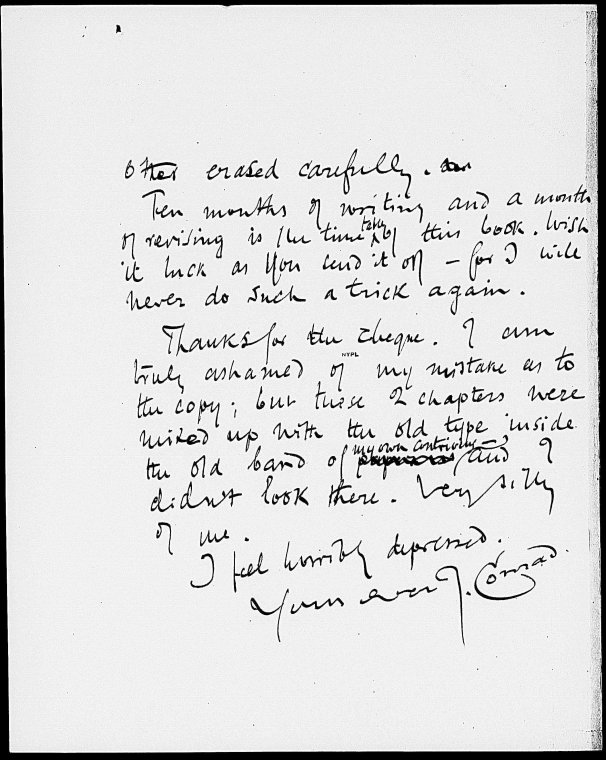 erased carefully.
Ten months of writing and a month
of revising is the time taken by this book. Wish
it luck as you send it off – for I will
never do such a trick again.
Thanks for the cheque. I am
NYPL
truly ashamed of my mistake as to
the copy; but these 2 chapters were
mixed up with the old type inside
the old band of my own contriving and I
didn't look there. Very silly
of me.
I feel horribly depressed.
Yours ever J. Conrad.